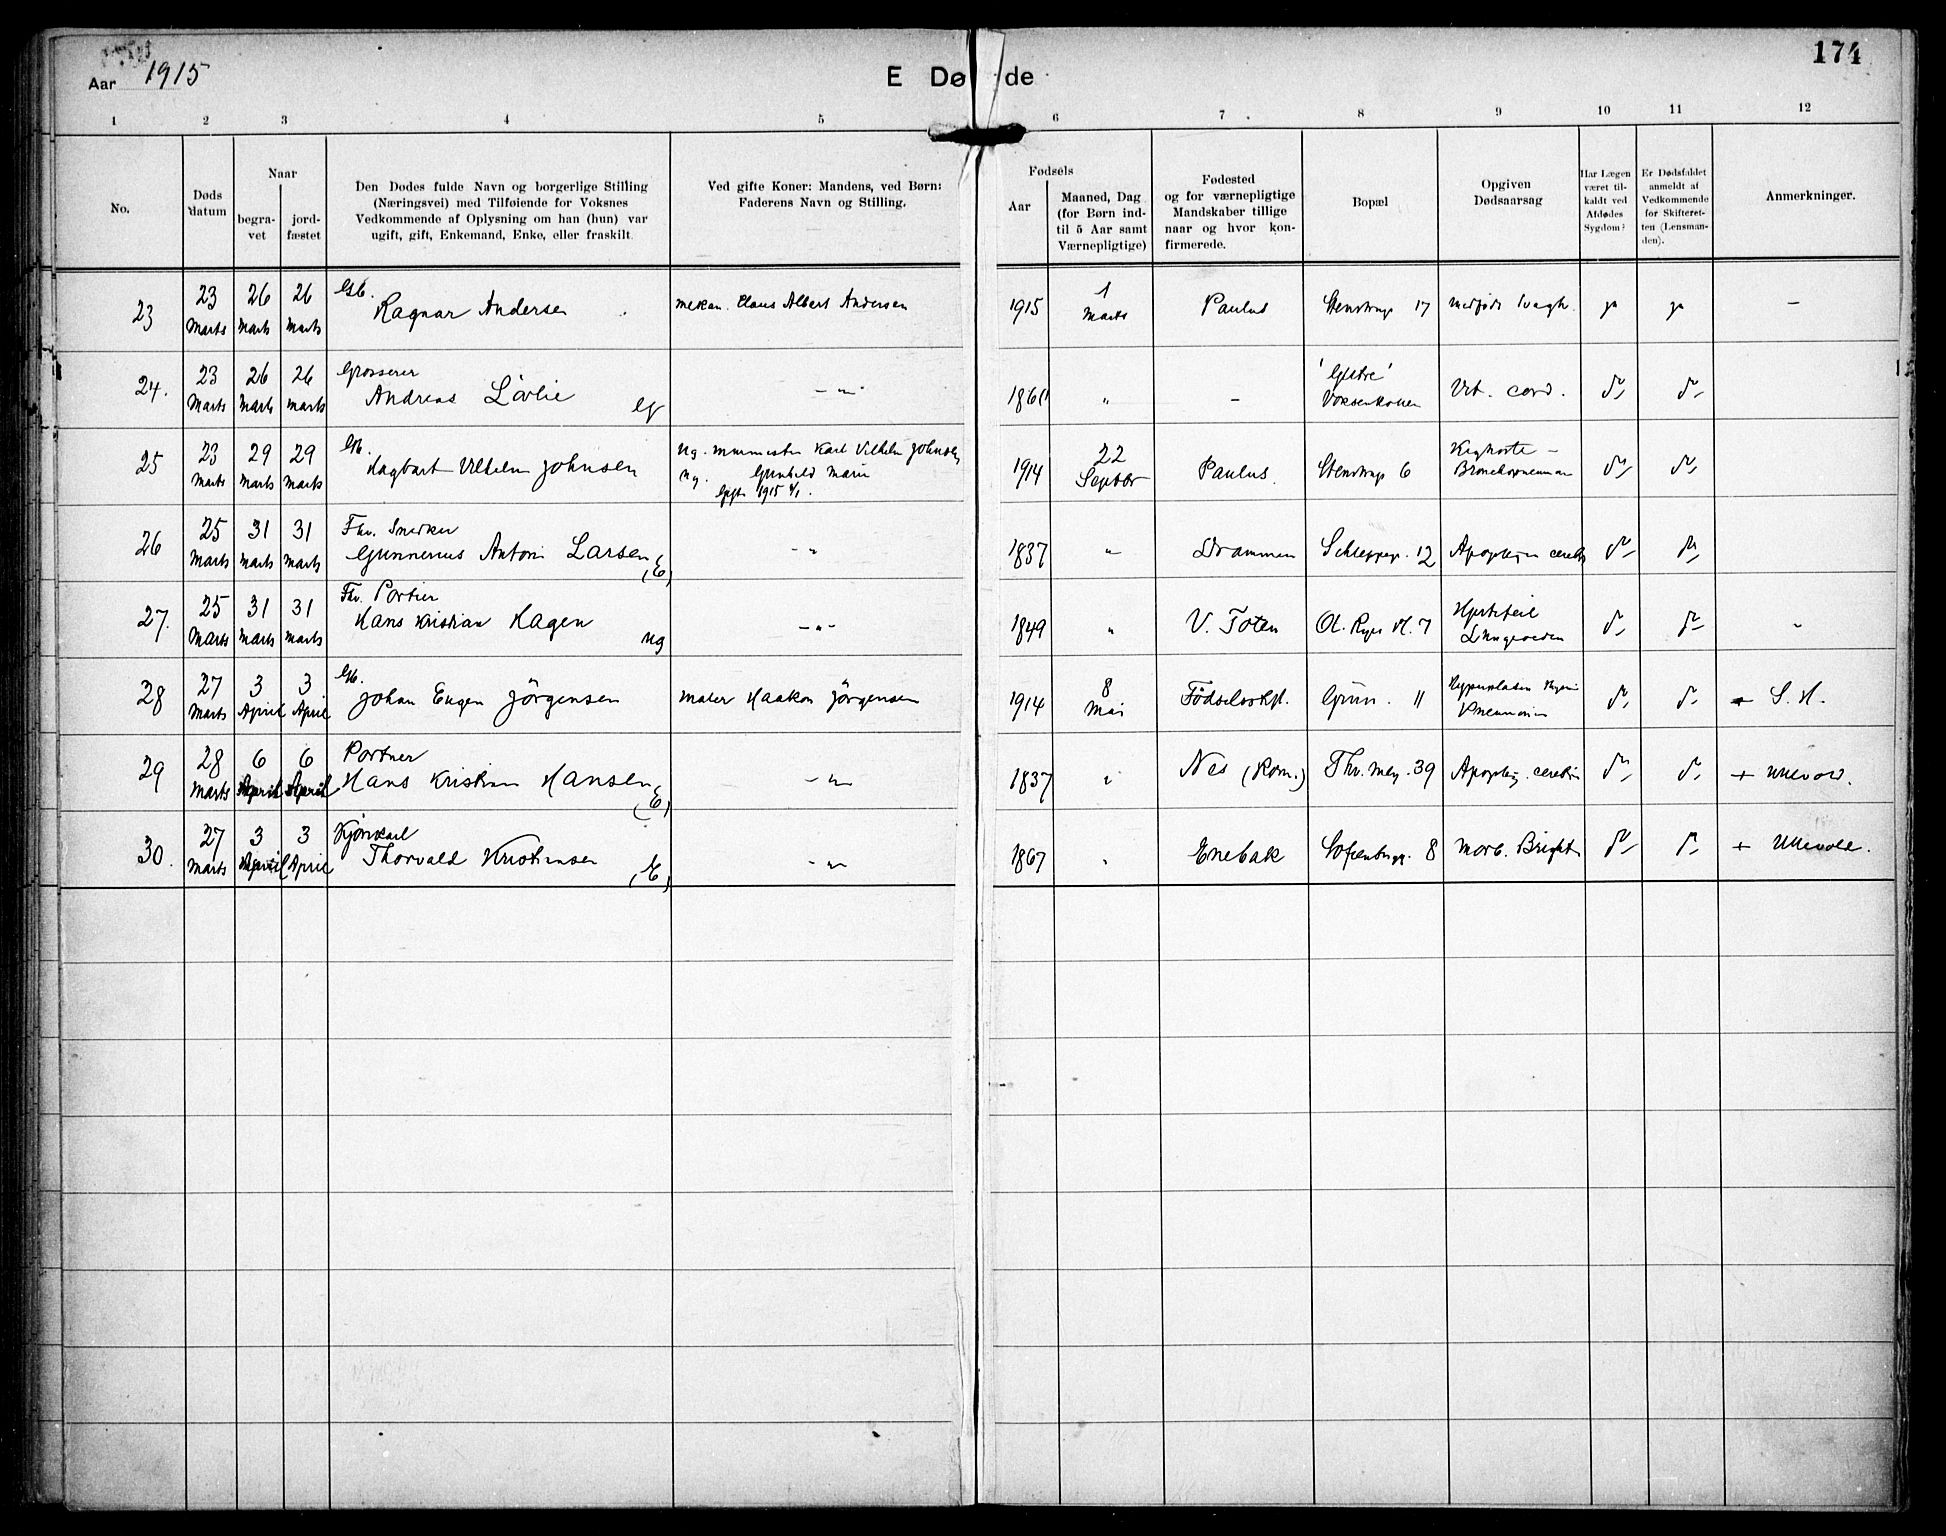 174
Aar 1915
E Dø de
1 2 3 4 5 6 7 8 9 10 11 12
No.
Døds datum
Naar
begravet
jordfæstet
Den Dødes fulde Navn og borgerlige Stilling
(Næringsvei) med Tilføiende for Voksnes
Vedkommende af Oplysning om han (hun) var
ugift, gift, Enkemand, Enke, eller fraskilt.
Ved gifte Koner: Mandens, ved Børn:
Faderens Navn og Stilling.
Fødsels
Aar
Maaned, Dag
(for Børn ind-
til 5 Aar samt
Værnepligtige)
Fødested
og for værnepligtige
Mandskaber tillige
naar og hvor kon-
firmerede.
Bopæl
Opgiven
Dødsaarsag
Har Lægen
været til-
kaldt ved
Afdødes
Sygdom?
Er Dødsfaldet
anmeldt af
Vedkommende
for Skifteret-
ten (Lensman-
den).
Anmerkninger.
23 23 Marts 26 Marts 26 Marts Gb.
Ragnar Andersen mekan. Claus Albert Andersen 1915 1 Marts Paulus Stenstrup 17 medfødt svagh. ja ja —
24. 23 Marts 26 Marts 26 Marts Grosserer
Andreas Lövlie G — " — " — Voksenkollen Vit. cord. do do
25 23 Marts 29 Marts 29 Marts Gb.
Dagbart Vilhelm Johnsen Ug. murmester Karl Vilhelm Johnsen
ug. Gunhild Marie
1915 1914 22 Septbr Paulus. Stenstrup 6 Kighoste —
do do
26 25 Marts 31 Marts 31 Marts Fhv. Snedker
Gunnerius Anton Larsen (E) - " 1837 " Drammen Schleppegr. 12 Apoplexin cerebri do do
27. 25 Marts 31 Marts 31 Marts Fhv. Portier
Hans Kristian Hagen ug — " — 1849 " V. Toten Ol. Ryes Pl. 7 Hjertefeil
do do "
28 27 Marts 3 April 3 April Gb.
Johan Eugen Jörgensen maler Haakon Jörgensen 1914 8 Mai Födselsstift. Grün. 11 do do + S. H.
29 28 Marts 6 April 6 April Portner
Hans Kristian Hansen (E) — " — 1837 " Nes (Rom.) Thv. Mey. 39 Apoplexi. cerebri do do + Ullevold.
30. 27 Marts 3 April 3 April Kjörekarl
Thorvald Kristiansen (E) — " — 1867 " Enebak Sofienbergg. 8 Morb. Brighti do do + Ullevold.